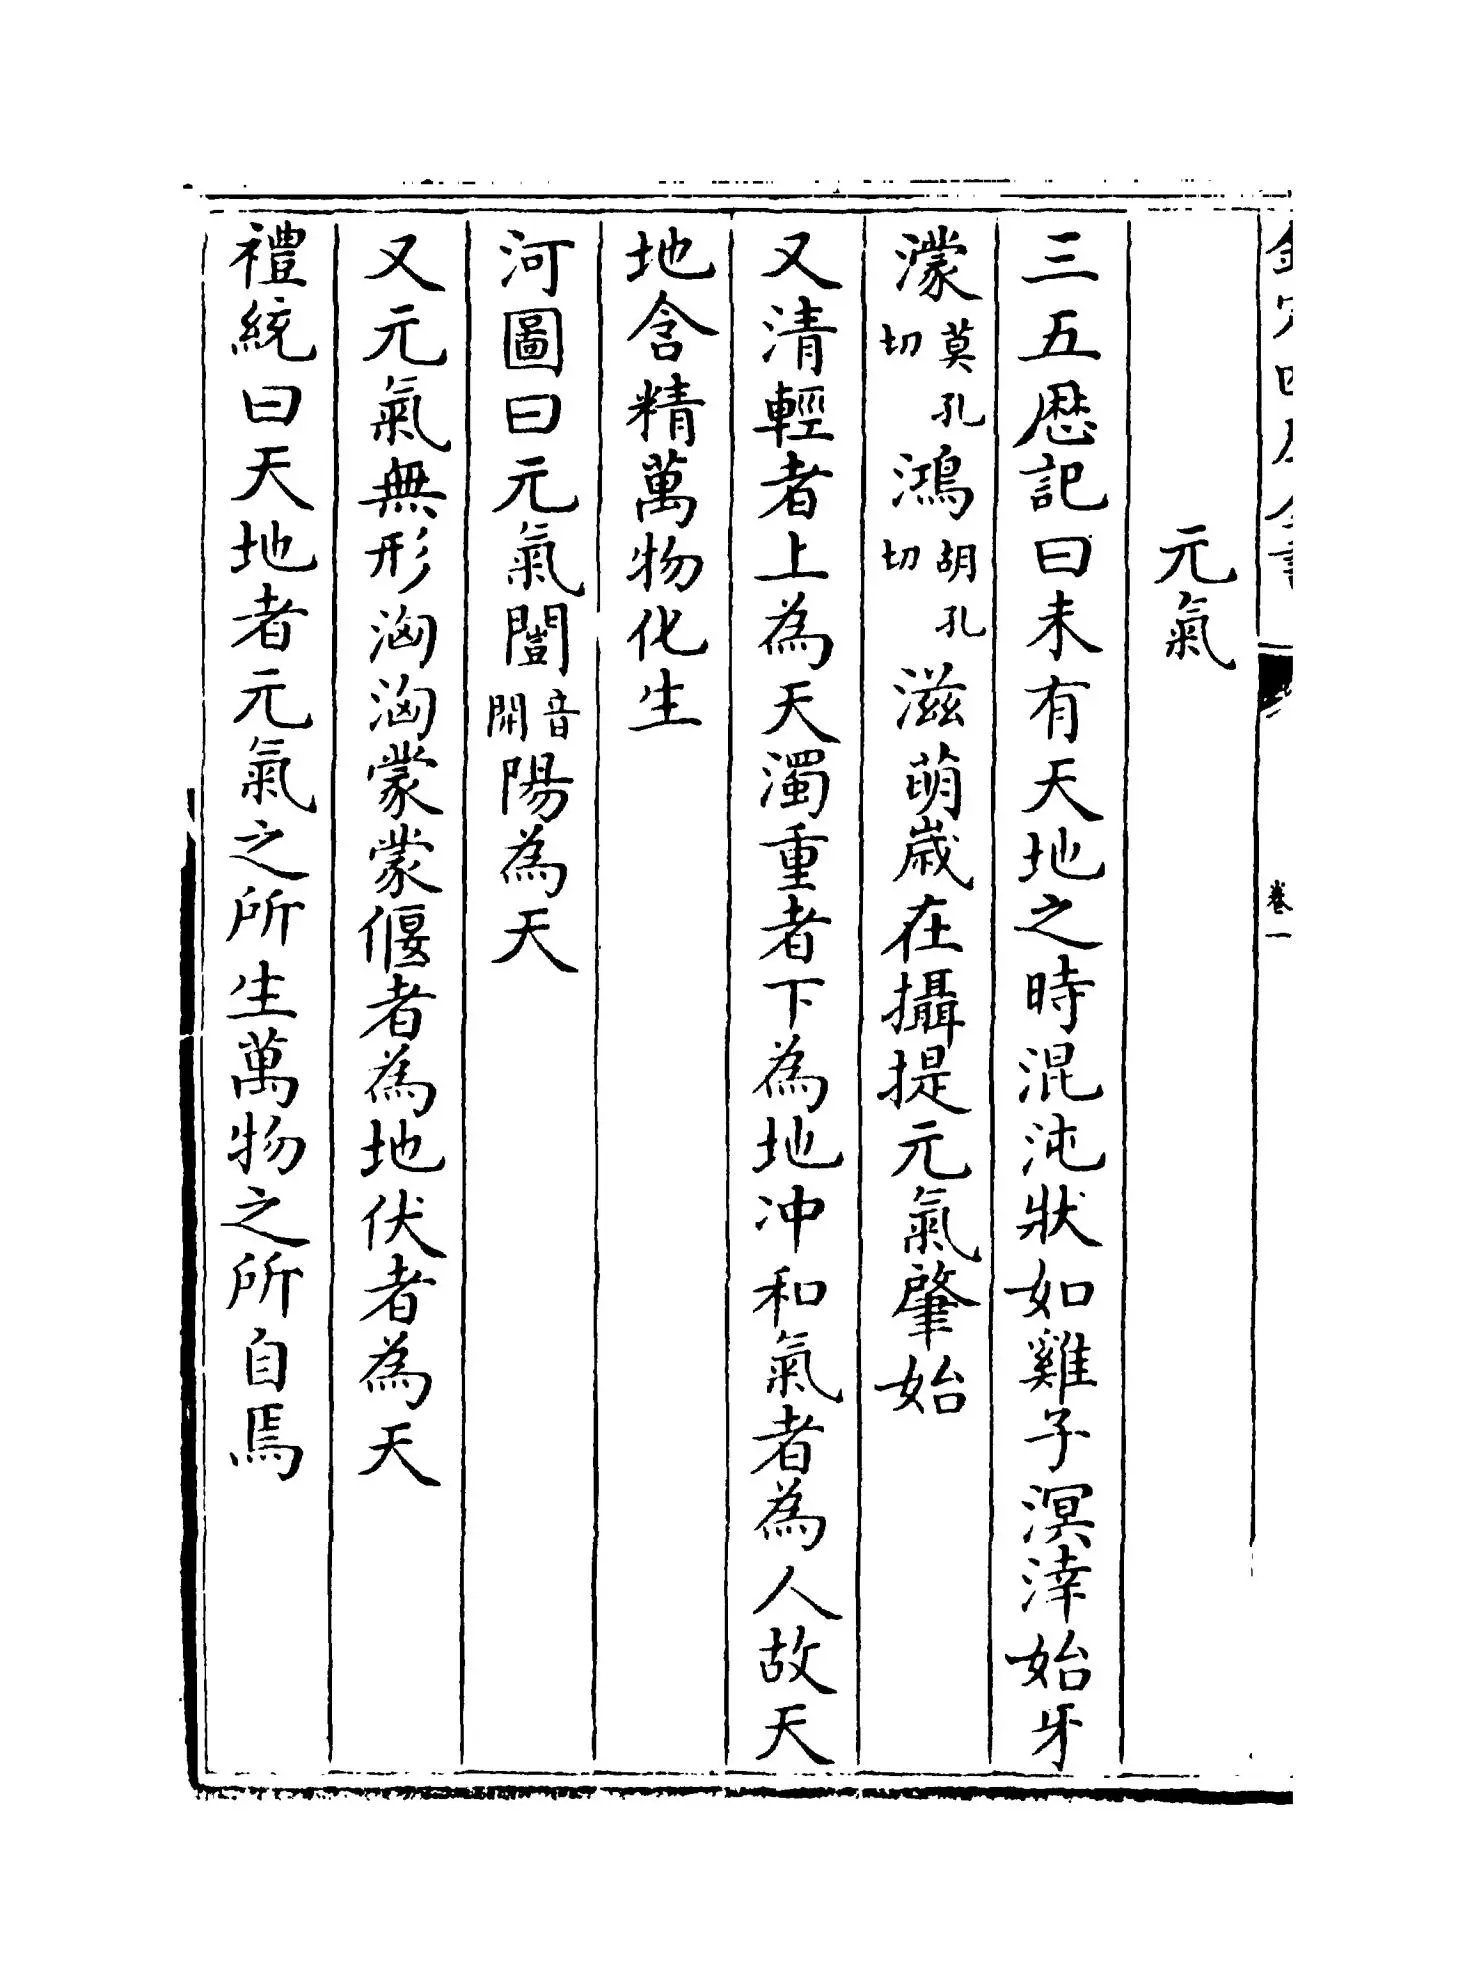 元氣
三五厯記曰未有天地之時混沌狀如雞子溟涬始牙
濛莫孔切鴻胡孔切滋萌歲在攝提元氣肇始
又清輕者上為天濁重者下為地冲和氣者為人故天
地含精萬物化生
河圖曰元氣闓音開陽為天
又元氣無形洶洶蒙蒙偃者為地伏者為天
禮統曰天地者元氣之所生萬物之所自焉
卷一